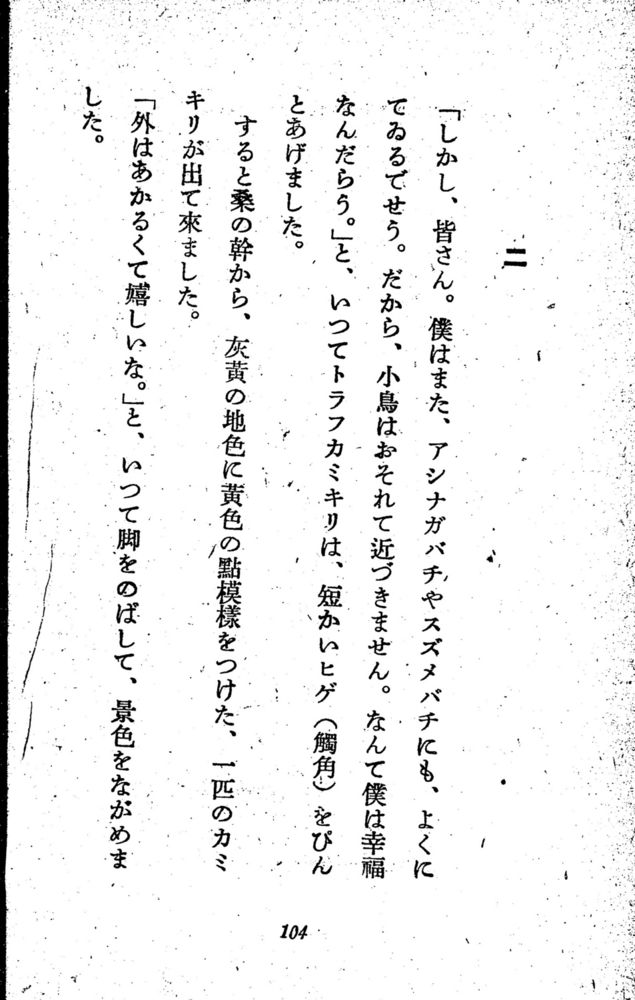 二
「しかし、皆さん。僕はまた、アシナガバチやスズメバチにも、よくに
てゐるでせう。だから、小鳥はおそれて近づきません。なんて僕は幸福
なんだらう。」と、いつてトラフカミキリは、短かいヒゲ(觸角)をぴん
とあげました。
すると桑の幹から、灰黄の地色に黄色の點模樣をつけた、一匹のカミ
キリが出て來ました。
「外はあかるくて嬉しいな。」と、いつて脚をのばして、景色をながめま
した。
104